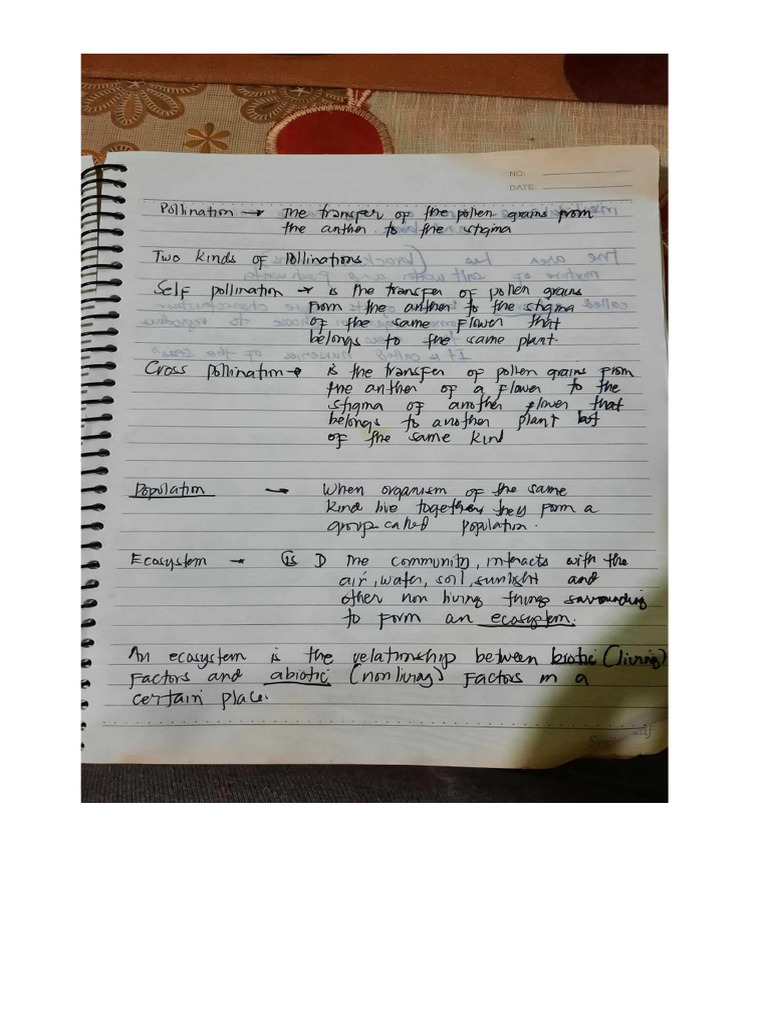 NO:
DATE:
Pollination → The transfer of the pollen grains from
the anther to the stigma
Two kinds of Pollinations
Self pollination → is the transfer of pollen grains
from the anther to the stigma
of the same flower that
belongs to the same plant.
Cross pollination → is the transfer of pollen grains from
the anther of a flower to the
stigma of another flower that
belongs to another plant but
of the same kind
Population → When organism of the same
kind live together they form a
group called population.
Ecosystem → is The community, interacts with the
air, water, soil, sunlight and
other non living things
to form an ecosystem.
An ecosystem is the relationship between biotic (living)
factors and abiotic (nonliving) factors in a
certain place.